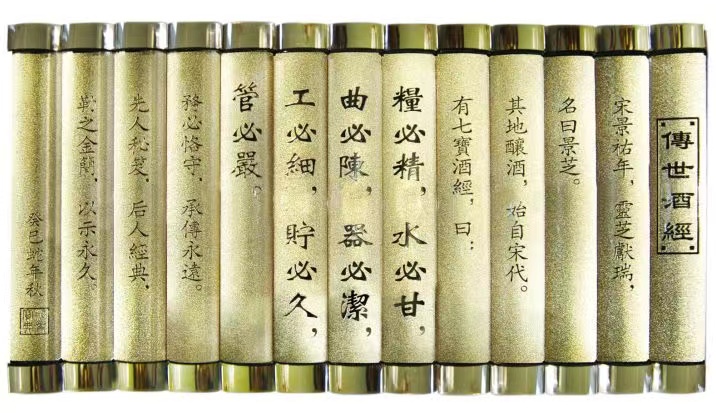 傳世酒經
宋景祐年，靈芝獻瑞，
名曰景芝。
其地釀酒，始自宋代。
有七寶酒經，曰：
糧必精，水必甘，
曲必陳，器必潔，
工必細，貯必久，
管必嚴。
務必恪守，承傳永遠。
先人秘笈，后人經典，
勒之金簡，以示永久。
癸巳蛇年秋